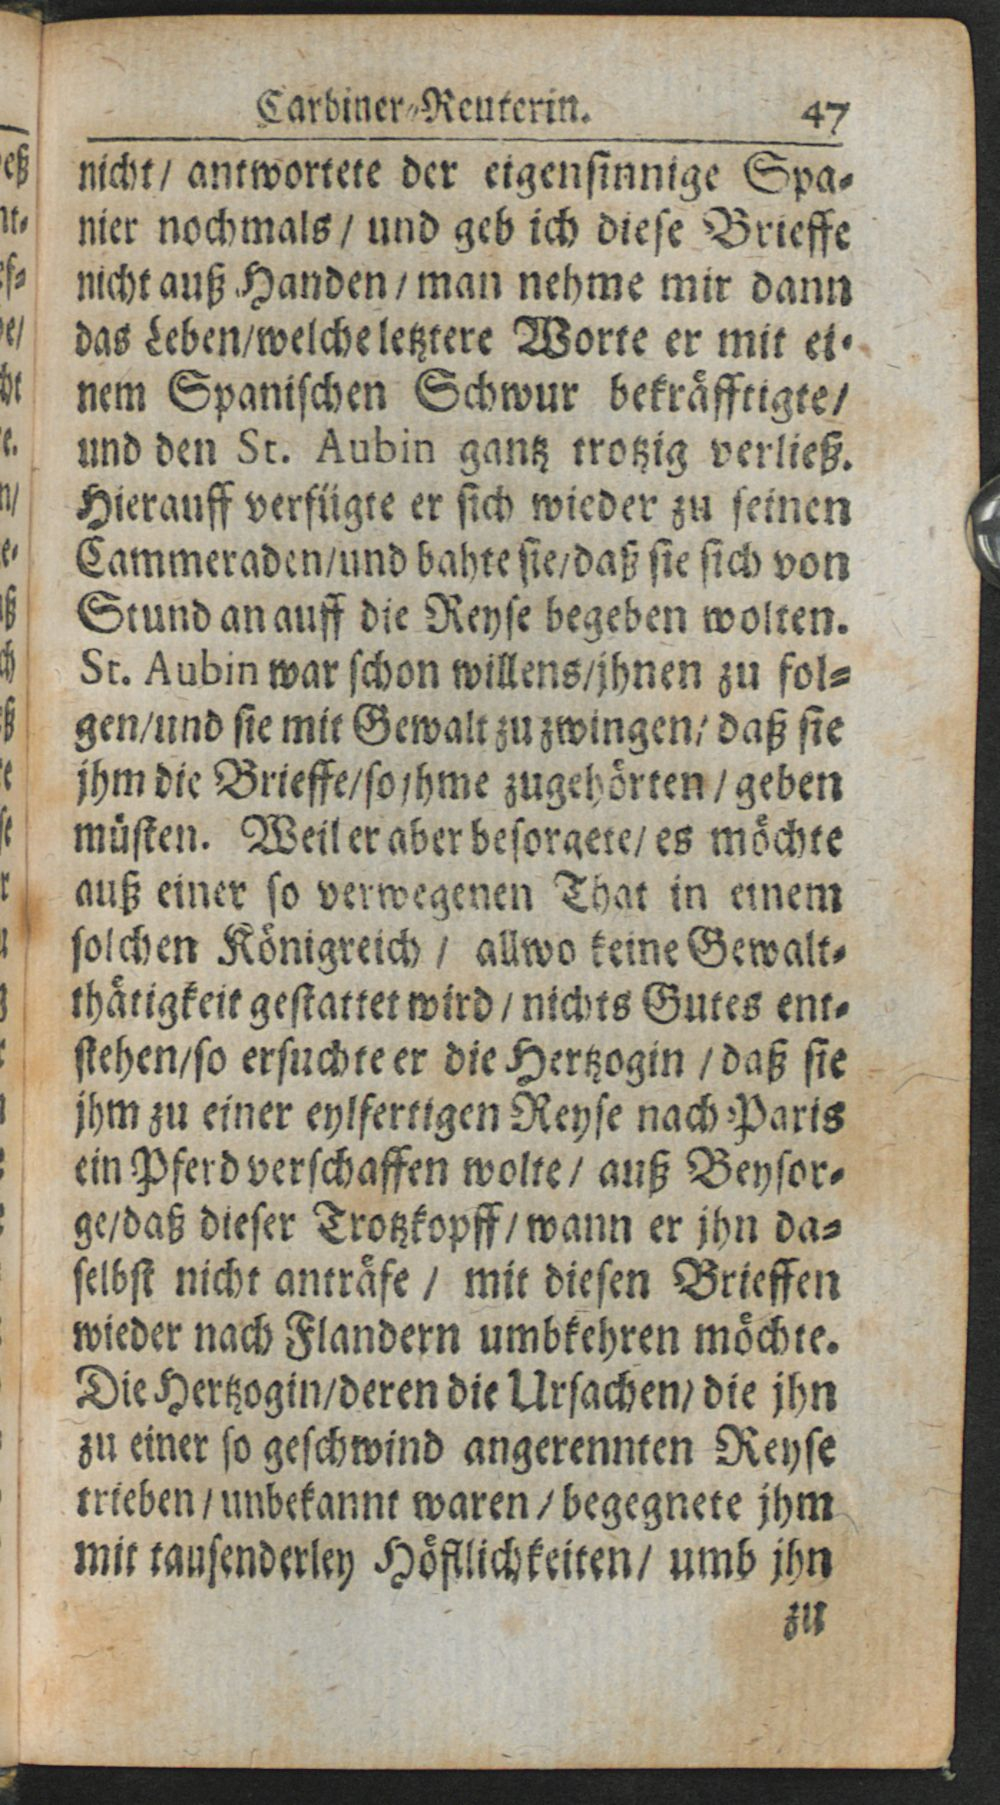 Carbiner-Reuterin. 47
nicht/ antwortete der eigensinnige Spa-
nier nochmals / und geb ich diese Brieffe
nicht auß Handen / man nehme mir dann
das Leben/welche letztere Worte er mit ei-
nem Spanischen Schwur bekräfftigte/
und den St. Aubin gantz trotzig verließ.
Hierauff verfügte er sich wieder zu seinen
Cammeraden/und bahte sie/daß sie sich von
Stund an auff die Reyse begeben wolten.
St. Aubin war schon willens/jhnen zu fol-
gen/und sie mit Gewalt zu zwingen/ daß sie
jhm die Brieffe/so jhme zugehörten / geben
müsten. Weil er aber besorgete/ es möchte
auß einer so verwegenen That in einem
solchen Königreich / allwo keine Gewalt-
thätigkeit gestattet wird / nichts Gutes ent-
stehen/so ersuchte er die Hertzogin / daß sie
jhm zu einer eylfertigen Reyse nach Paris
ein Pferd verschaffen wolte / auß Beysor-
ge/daß dieser Trotzkopff / wann er jhn da-
selbst nicht anträfe / mit diesen Brieffen
wieder nach Flandern umbkehren möchte.
Die Hertzogin/deren die Ursachen/ die jhn
zu einer so geschwind angerennten Reyse
trieben / unbekannt waren / begegnete jhm
mit tausenderley Höfllichkeiten/ umb jhn
zu